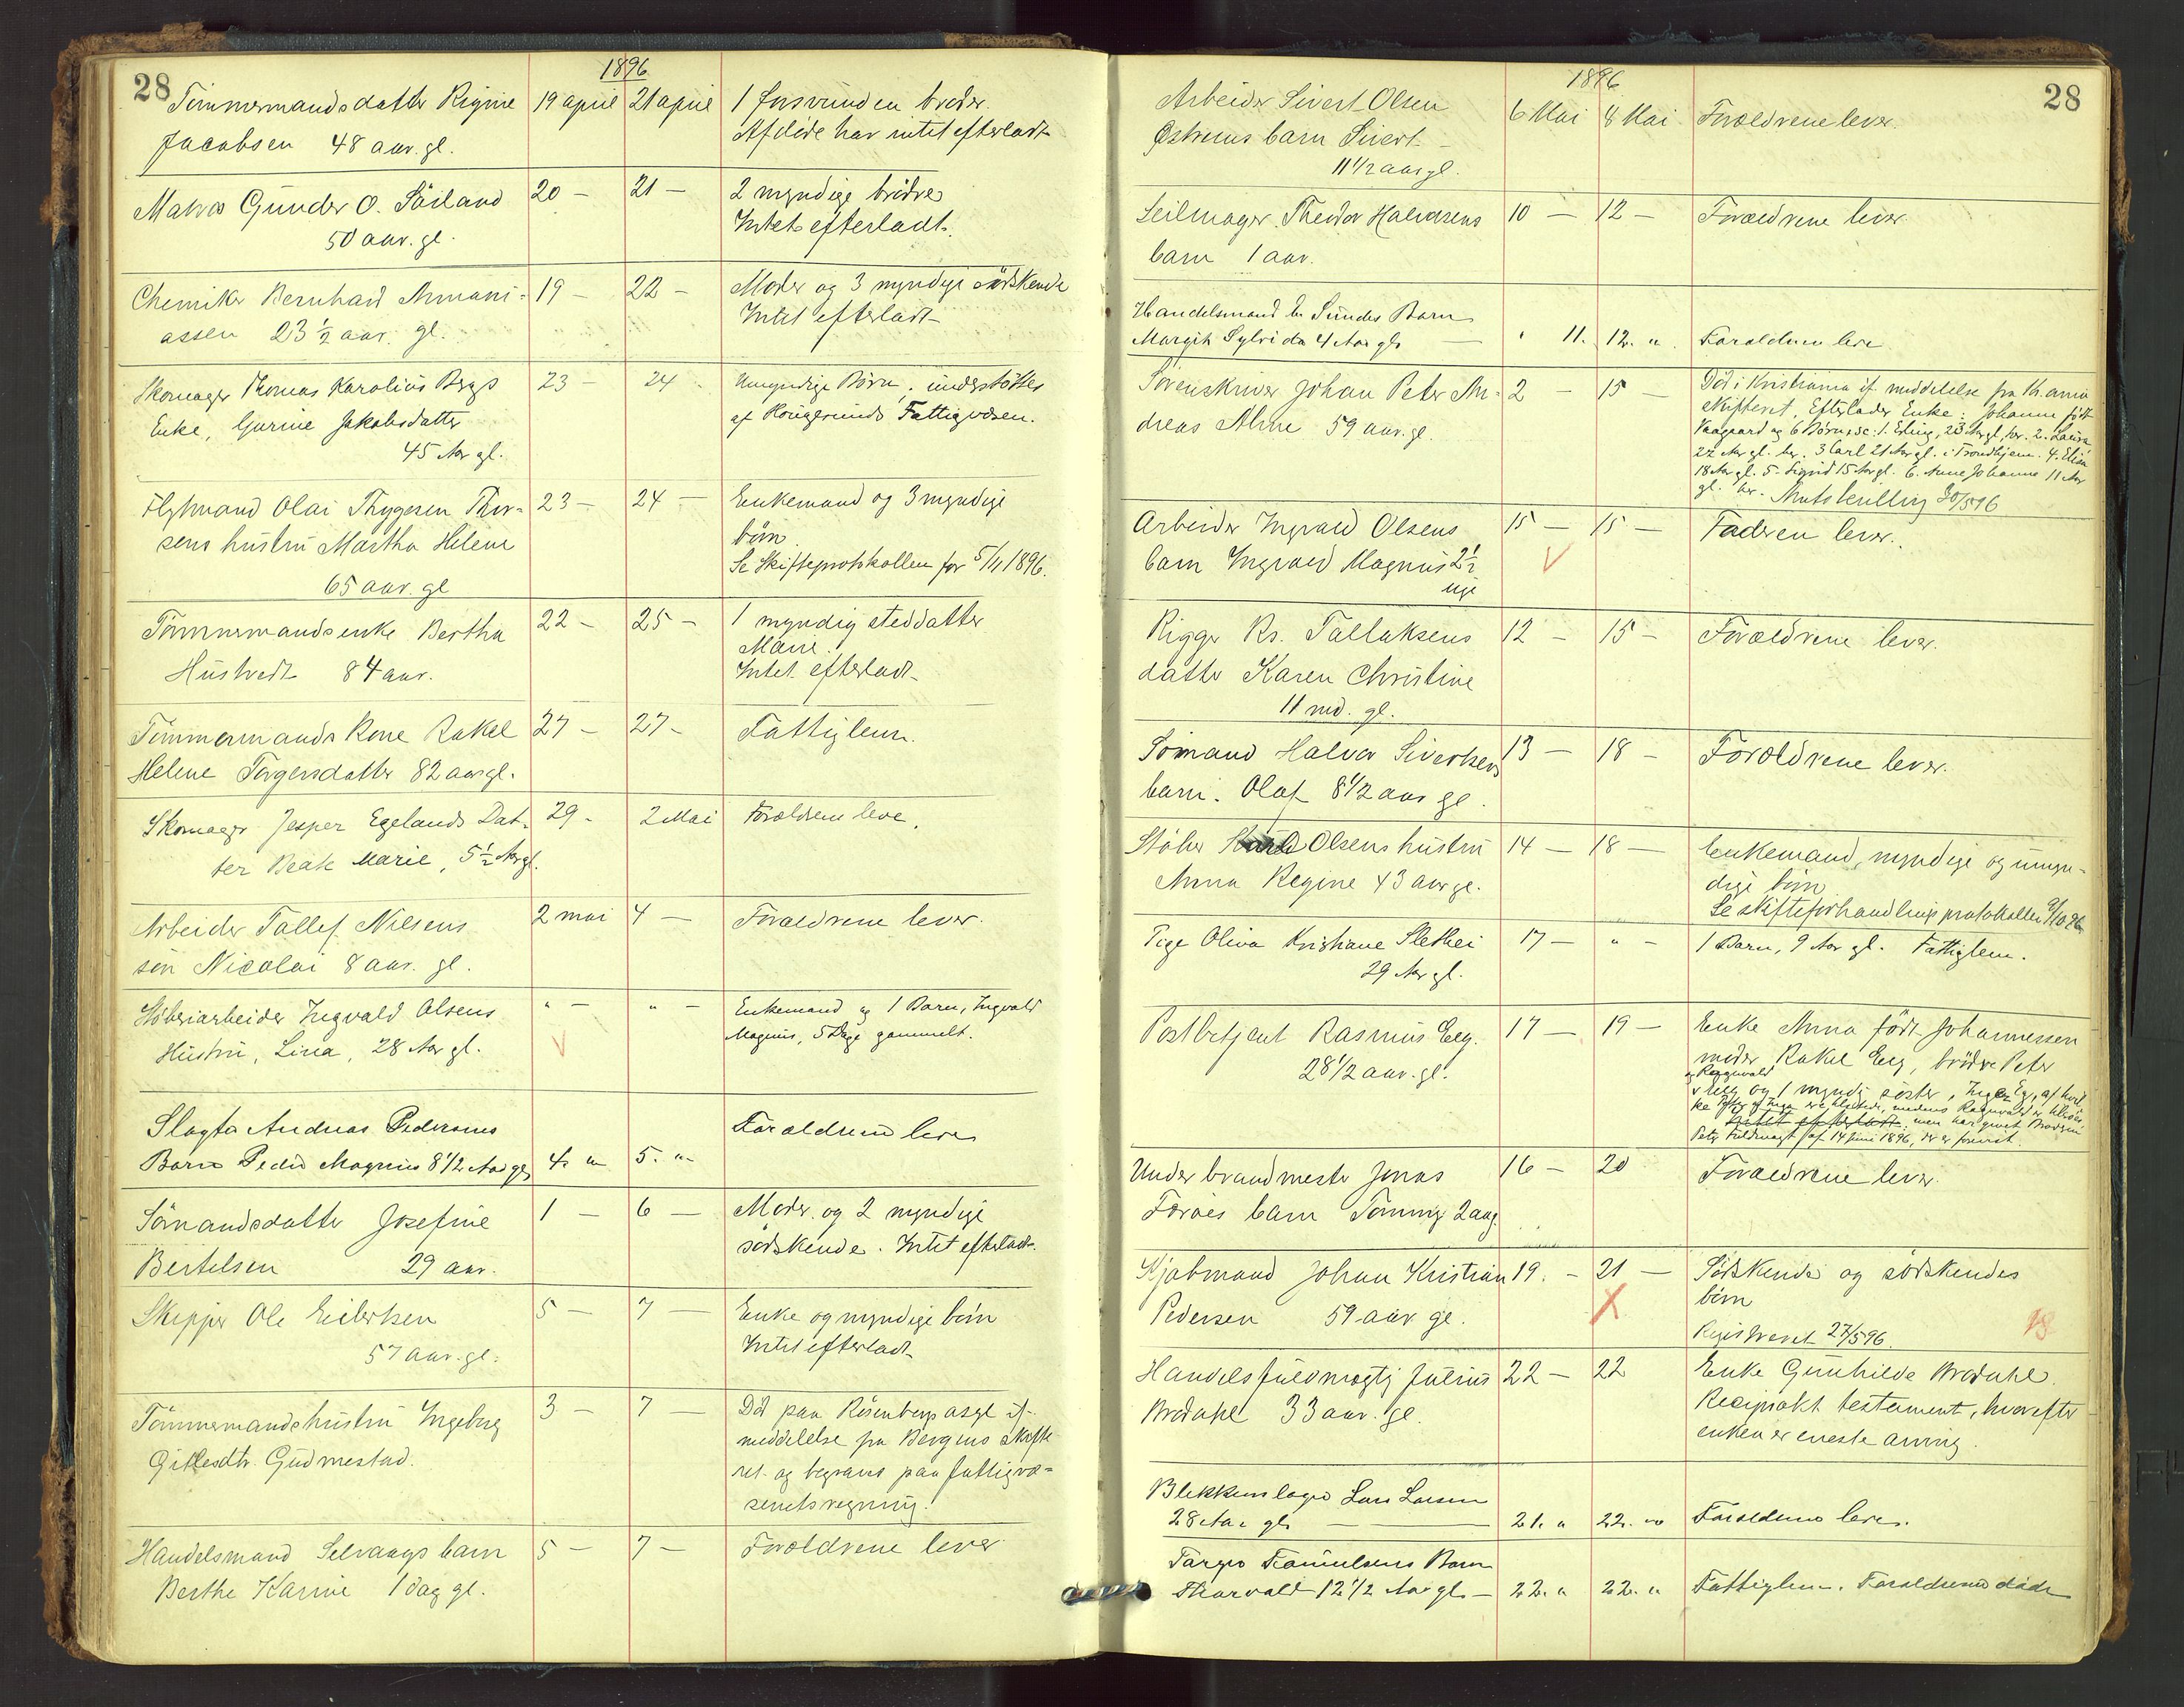 28
1896
Tømmermandsdatter Regine 19 april 21 april 1 forsvunden broder.
Jacobsen 48 aar. gl. Afdøde har intet efterladt
Matros Gunder O. Söiland 20 — 21 — 2 myndige brødre
50 aar. gl. Intet efterladt.
Chemiker Bernhard Amani= 19 — 22 — Moder og 3 myndige sødskende
assen 23 1/2 aar. gl. Intet efterladt
Skomager Thomas Karolius Bergs 23 — 24 - Umyndige Børn, understøttes
Enke, Gurine Jakobsdatter af Haugesunds Fattigvæsen.
45 Aar gl.
Flytmand Olai Thygesen Thor= 23 — 24 — Enkemand og 3 myndige
sens hustru Martha Helene børn.
65 aar. gl Se Skifteprotokollen for 5/11 1896.
Tømmermandsenke Bertha 22 — 25 — 1 myndig steddatter
Marie.
Hustvedt 84 aar. Intet efterladt
Tømmermands Kone Rakel 27 — 27 - Fattiglem.
Helene Torgersdatter 82 aar gl.
Skomager Jesper Egelands Dat- 29 - 2 Mai Forældrene leve.
ter Beate Marie, 5 1/2 Aar gl.
Arbeider Tallef Nilsens 2 mai 4 — Forældrene lever.
søn Nicolai 8 aar. gl.
Støberiarbeider Ingvald Olsens " — " — Enkemand og 1 Barn, Ingvald
Hustru, Lina, 28 Aar gl. V Magnus, 5 Dage gammelt.
Slagter Andreas Pedersens Forældrene lever
Barn Peder Magnus 8 1/2 Aar gl 4. " 5. "
Sømandsdatter Josefine 1 — 6 — Moder og 2 myndige
sødskende. Intet efterladt.
Bertelsen 29 aar.
Skipper Ole Eilertsen 5 — 7 — Enke og myndige børn
57 aar. gl. Intet efterladt
Tømmermandshustru Ingeborg 3 — 7 — Død paa Rosenbergs asyl if.
Gitlesdtr. Gudmestad. meddelelse fra Bergens skifte
ret og begraves paa fattigvæ=
senets regning.
Handelsmand Selvaags barn 5 — 7 — Forældrene lever
Berthe Karine 1 dag gl.
28
1896
Arbeider Sivert Olsen 6 Mai 8 Mai Forældrene lever.
Østrems barn Sivert —
11 1/2 aar gl.
Seilmager Theodor Halvorsens 10 — 12 — Forældrene lever.
barn 1 aar.
Handelsmand Sundes Barn
Margit Sylvida 4 Aar gl — " 11. 12. " Forældrene leve
Sorenskriver Johan Peter An= 2 — 15 — Død i Kristiania if. meddelelse fra Kr.ania
dreas Alme 59 aar. gl. skifteret. Efterlader Enke: Johanne født
Vaagaard og 6 Børn, se: 1. Erling, 23 Aar gl, her. 2. Laura
22 Aar gl. her. 3 Carl 21 Aar gl. i Trondhjem. 4. Elisa
18 Aar gl. 5. Sigrid 15 Aar gl. 6. Anne Johanne 11 Aar
gl. her. 30/5 96
Arbeider Ingvald Olsens 15 — 15 — Faderen lever.
barn Ingvald Magnus 2 1/2 V
uge
Rigger Rs. Tallaksens 12 — 15 — Forældrene lever.
datter Karen Christine
11 md. gl.
Sømand Halvor Sivertsens 13 — 18 — Forældrene lever.
barn. Olaf 8 1/2 aar gl.
Støber Olsens hustru 14 — 18 — Enkemand, myndige og umyn-
Anna Regine 43 aar gl. dige børn
Se skifteforhandlingsprotokollen 9/10 96
Pige Oliva Kristiane Slethei 17 — " — 1 Barn, 9 Aar gl. Fattiglem.
29 Aar gl.
Postbetjent Rasmus Eeg. 17 — 19 — Enke Anna født Johannessen
28 1/2 aar. gl. moder Rakel Eeg, brødre Peter
og Ragnvald
Eeg og 1 myndig søster, Inga Eeg, af hvil
ke Peter og Inga ere tilstede, medens Ragnvald er tilsøs,
Intet efterladt. men har givet Broderen
Peter Fuldmagt af 14 Juni 1896, der er forevist.
Underbrandmester Jonas 16 — 20 Forældrene lever.
Færøes barn Tommy 2 aar
Skjøbmand Johan Kristian 19. — 21 — Sødskende og sødskendes
Pedersen 59 aar gl. X børn
Registreret 27/5 96. 18
Handelsfuldmægtig Julius 22 — 22 Enke Gunhilde Brodahl.
Brodahl 33 aar. gl. Reciprokt testament, hvorefter
enken er eneste arving.
Blikkenslager Lars Larsen
28 Aar gl — 21. " 22. " Forældrene lever.
Farger Samuelsens Barn
Thorvald 12 1/2 Aar gl — 22. " 22. " Fattiglem. Forældrene døde